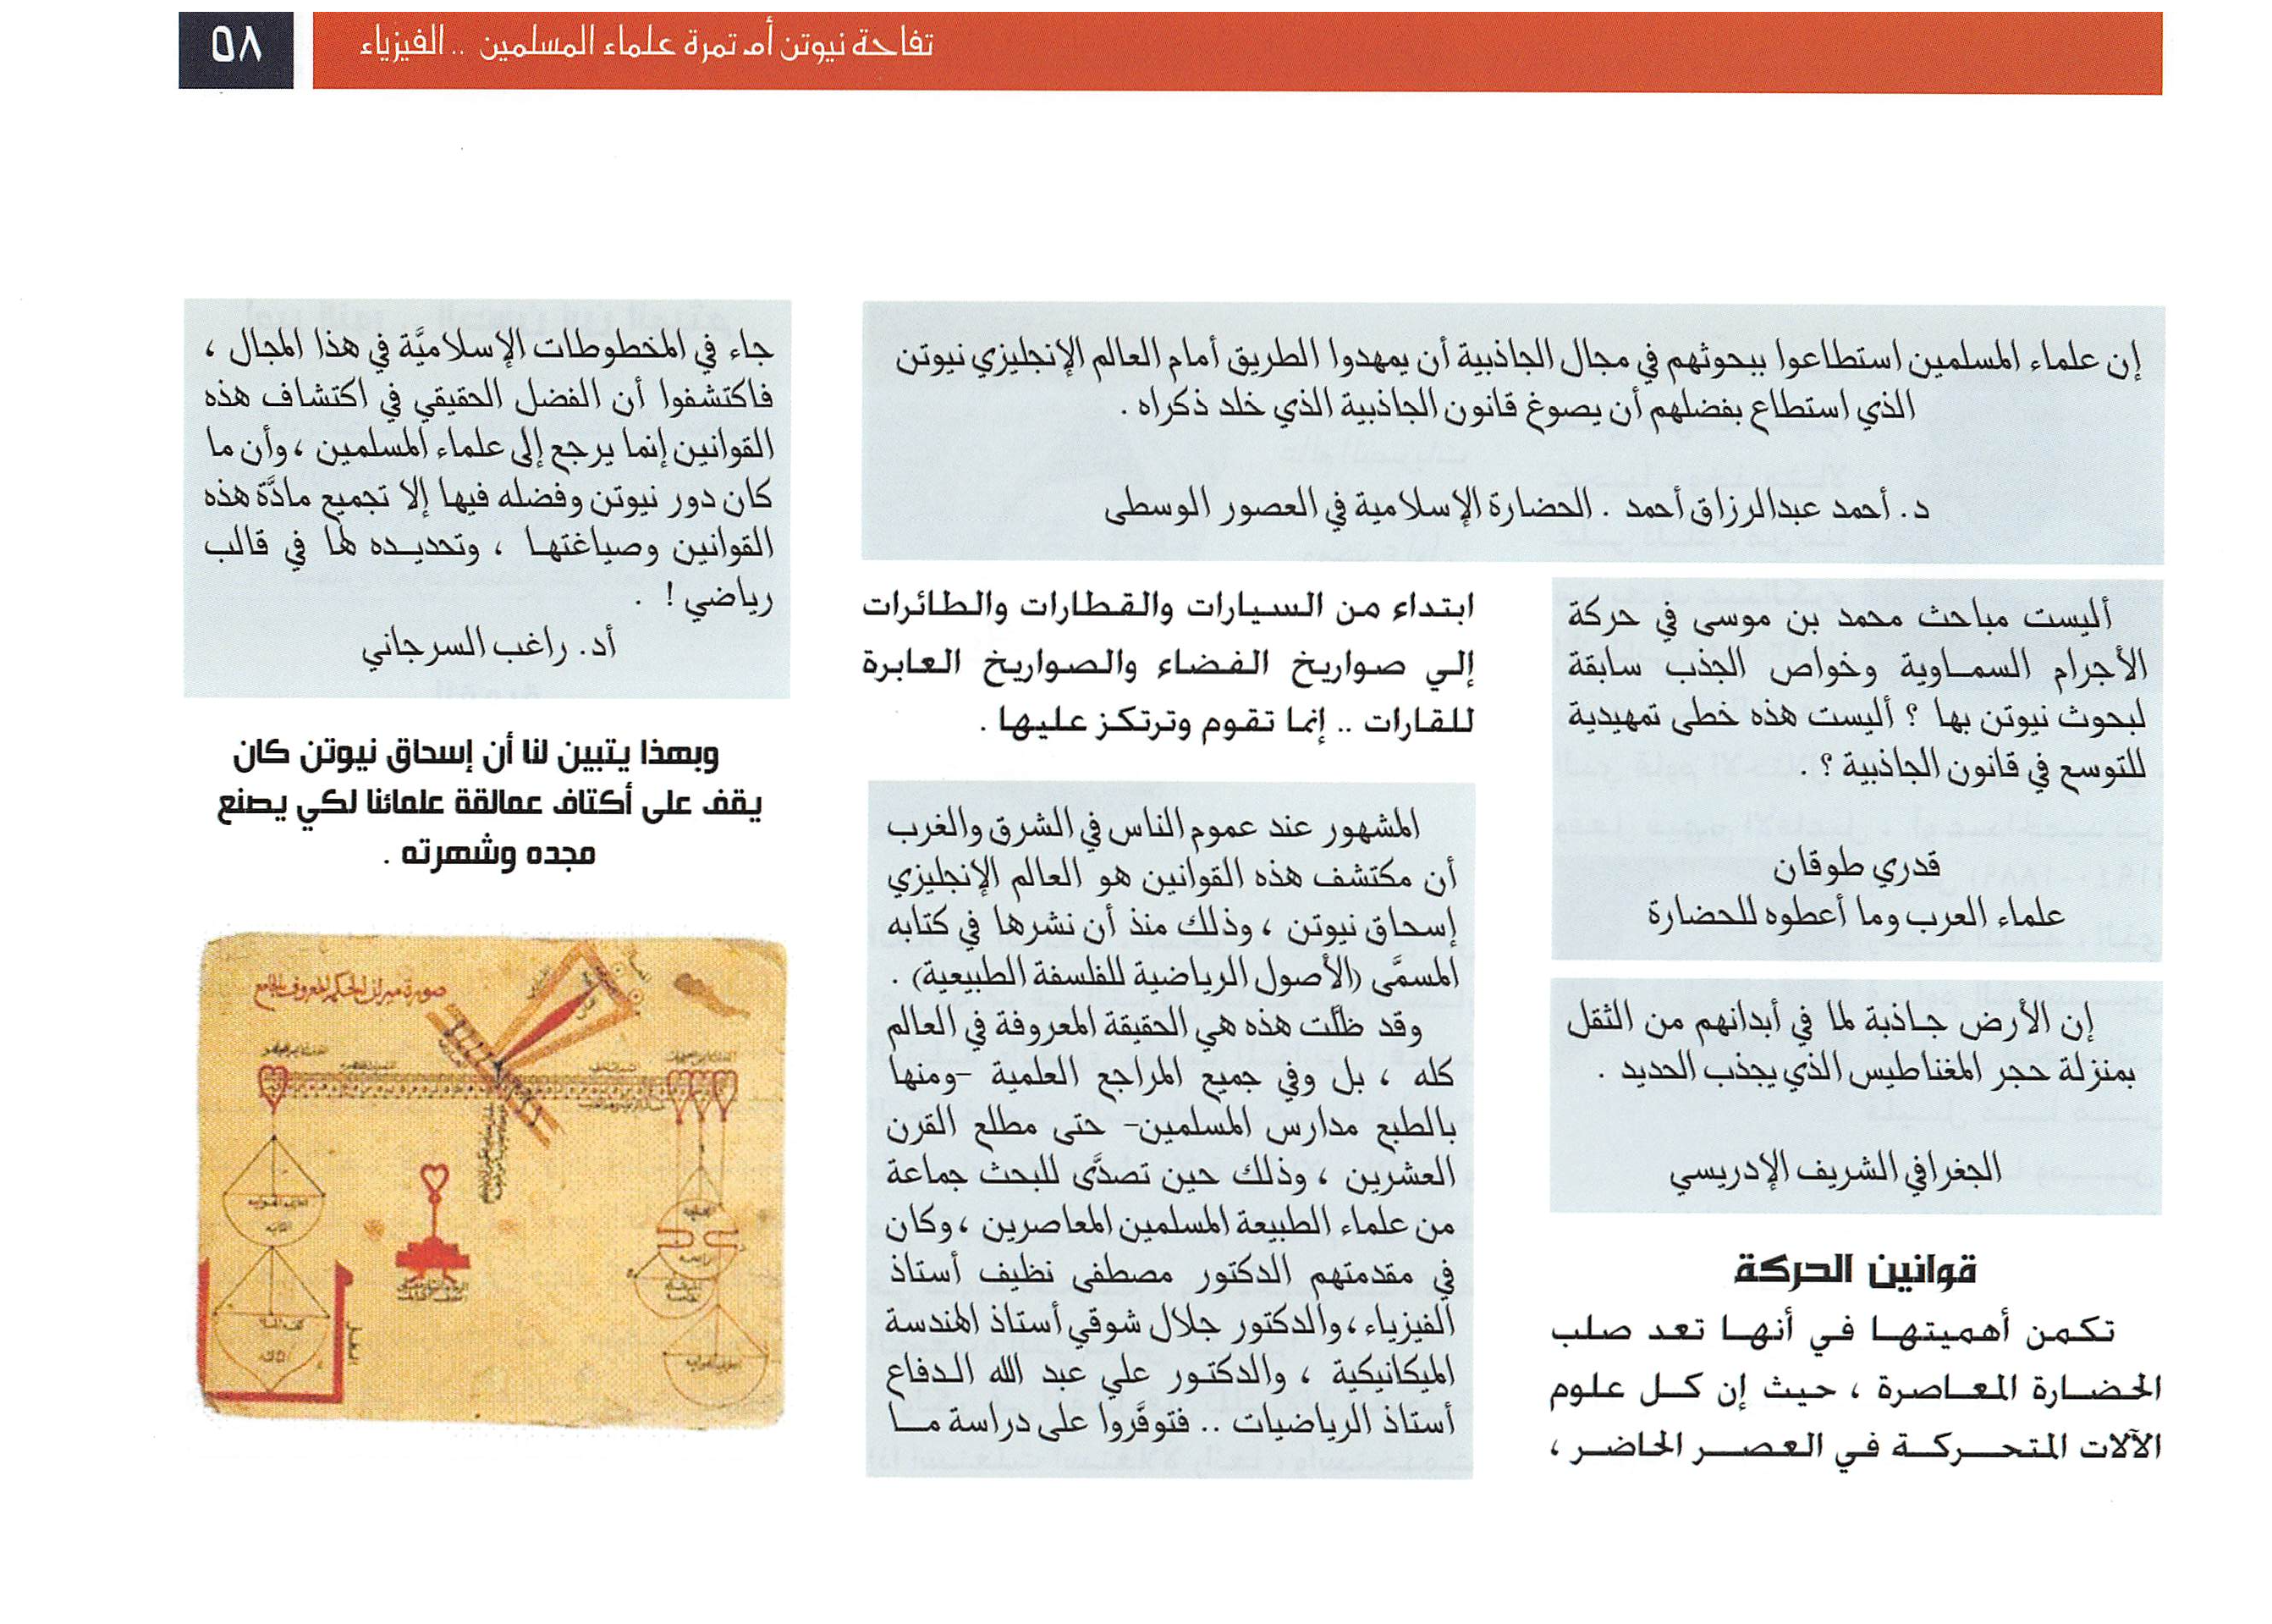 تفاحة نيوتن أم تمرة علماء المسلمين .. الفيزياء
٥٨
إن علماء المسلمين استطاعوا ببحوثهم في مجال الجاذبية أن يمهدوا الطريق أمام العالم الإنجليزي نيوتن
الذي استطاع بفضلهم أن يصوغ قانون الجاذبية الذي خلد ذكراه .
د. أحمد عبدالرزاق أحمد . الحضارة الإسلامية في العصور الوسطى
أليست مباحث محمد بن موسى في حركة
الأجرام السماوية وخواص الجذب سابقة
لبحوث نيوتن بها ؟ أليست هذه خطى تمهيدية
للتوسع في قانون الجاذبية ؟ .
قدري طوقان
علماء العرب وما أعطوه للحضارة
إن الأرض جاذبة لما في أبدانهم من الثقل
بمنزلة حجر المغناطيس الذي يجذب الحديد .
الجغرافي الشريف الإدريسي
قوانين الحركة
تكمن أهميتها في أنها تعد صلب
الحضارة المعاصرة ، حيث إن كل علوم
الآلات المتحركة في العصر الحاضر ،
ابتداء من السيارات والقطارات والطائرات
إلي صواريخ الفضاء والصواريخ العابرة
للقارات .. إنما تقوم وترتكز عليها .
المشهور عند عموم الناس في الشرق والغرب
أن مكتشف هذه القوانين هو العالم الإنجليزي
إسحاق نيوتن ، وذلك منذ أن نشرها في كتابه
المسمَّى (الأصول الرياضية للفلسفة الطبيعية) .
وقد ظلَّت هذه هي الحقيقة المعروفة في العالم
كله ، بل وفي جميع المراجع العلمية -ومنها
بالطبع مدارس المسلمين- حتى مطلع القرن
العشرين ، وذلك حين تصدَّى للبحث جماعة
من علماء الطبيعة المسلمين المعاصرين ، وكان
في مقدمتهم الدكتور مصطفى نظيف أستاذ
الفيزياء ، والدكتور جلال شوقي أستاذ الهندسة
الميكانيكية ، والدكتور علي عبد الله الدفاع
أستاذ الرياضيات .. فتوفَّروا على دراسة ما
جاء في المخطوطات الإسلاميَّة في هذا المجال ،
فاكتشفوا أن الفضل الحقيقي في اكتشاف هذه
القوانين إنما يرجع إلى علماء المسلمين ، وأن ما
كان دور نيوتن وفضله فيها إلا تجميع مادَّة هذه
القوانين وصياغتها ، وتحديده لها في قالب
رياضي ! .
أد. راغب السرجاني
وبهذا يتبين لنا أن إسحاق نيوتن كان
يقف على أكتاف عمالقة علمائنا لكي يصنع
مجده وشهرته .
صورة ميزان الحكمة المعروف بالجامع